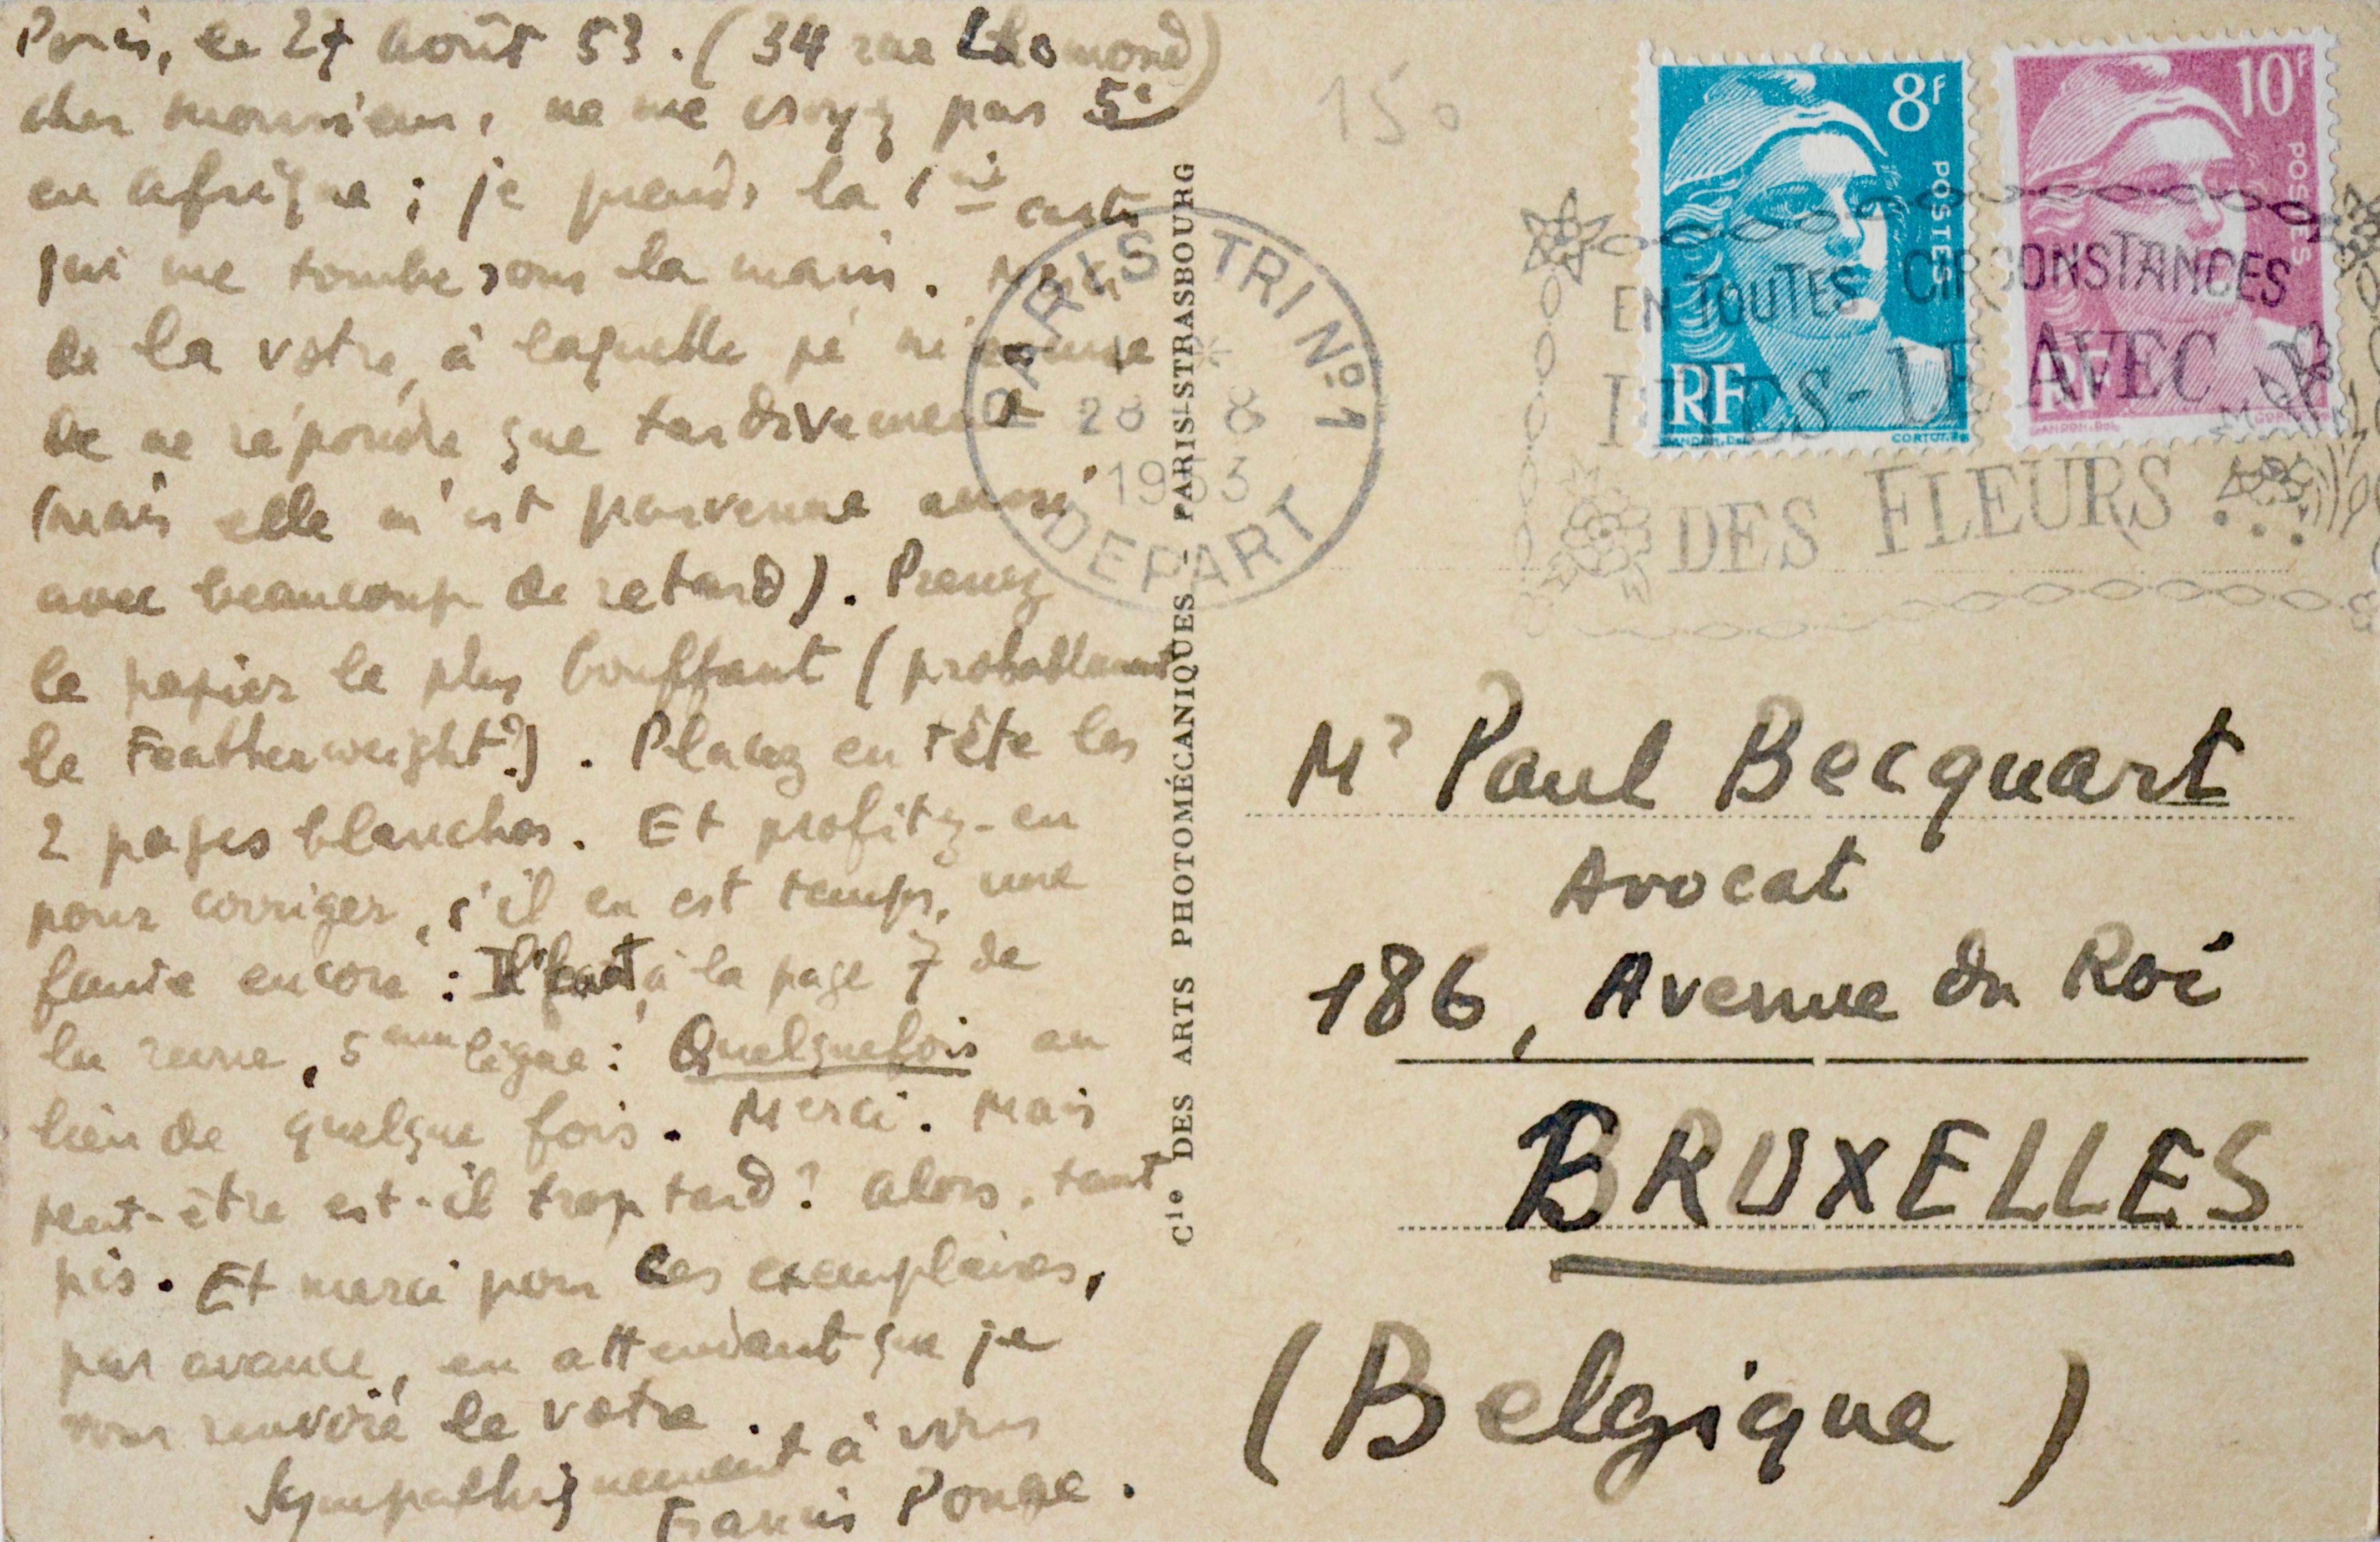 Paris, le 27 Août 53. (34 rue Lhomond)
cher monsieur, ne me croyez pas 5e
en Afrique ; je prends la 1ère carte
qui me tombe sous la main. Merci
de la vôtre, à laquelle je m'excuse
de ne répondre que tardivement
(mais elle m'est parvenue aussi
avec beaucoup de retard). Prenez
le papier le plus bouffant (probablement
le Featherweight ?). Placez en tête les
2 pages blanches. Et profitez-en
pour corriger, s'il en est temps, une
faute encore : Il faut, à la page 7 de
la revue, 5eme ligne : Quelquefois au
lieu de quelque fois. Merci. Mais
peut-être est-il trop tard ? Alors, tant
pis. Et merci pour les exemplaires,
par avance, en attendant que je
vous renvoie le vôtre.
Sympathiquement à vous
Francis Ponge.
Cie DES ARTS PHOTOMÉCANIQUES - PARIS-STRASBOURG
PARIS TRI No 1
28 8
1953
DEPART
150
8F
POSTES
RF
GANDON, Del.
CORTOT. Sc
10F
POSTES
RF
GANDON. Del
EN TOUTES CIRCONSTANCES
DITES-LE AVEC
DES FLEURS...
Mr Paul Becquart
Avocat
186, Avenue du Roi
BRUXELLES
(Belgique)